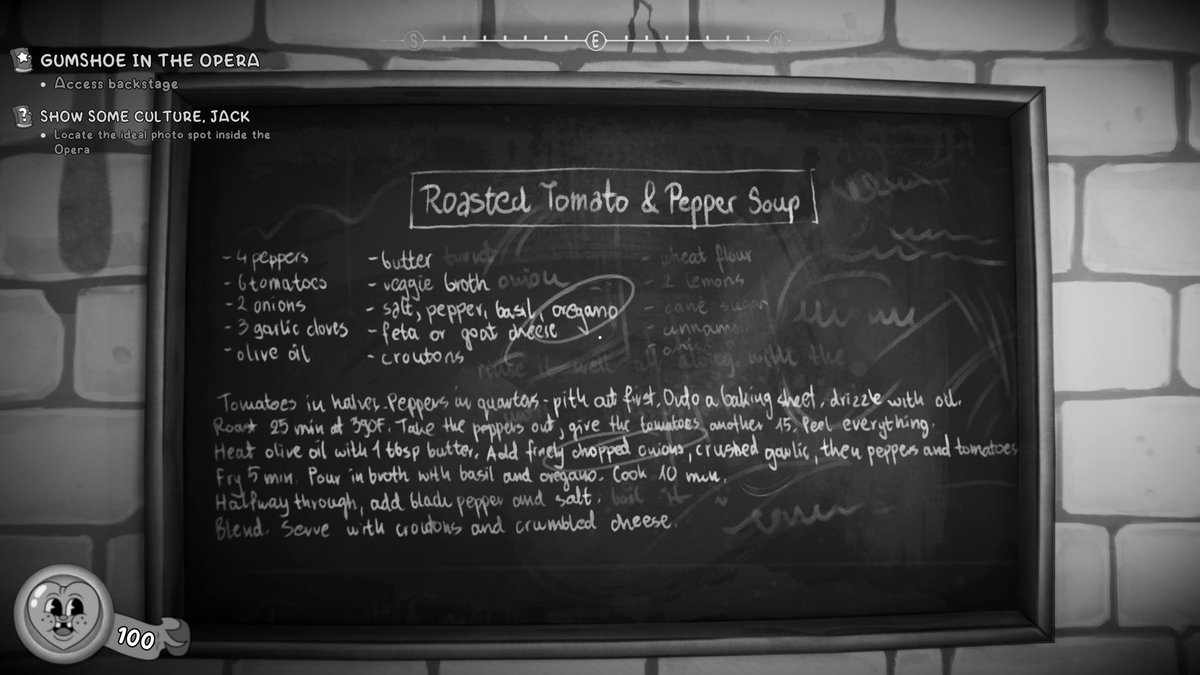 S E N
GUMSHOE IN THE OPERA
• Access backstage
SHOW SOME CULTURE, JACK
• Locate the ideal photo spot inside the
Opera
Roasted Tomato & Pepper Soup
- 4 peppers
- 6 tomatoes
- 2 onions
- 3 garlic cloves
- olive oil
- butter
- veggie broth onion
- salt, pepper, basil, oregano
- feta or goat cheese
- croutons
- wheat flour
- 2 lemons
- cane sugar
- cinnamon
well along with the
Tomatoes in halves. Peppers in quarters - pith out first. Onto a baking sheet, drizzle with oil.
Roast 25 min at 390F. Take the peppers out, give the tomatoes another 15. Peel everything.
Heat olive oil with 1 tbsp butter. Add finely chopped onions, crushed garlic, then peppers and tomatoes
Fry 5 min. Pour in broth with basil and oregano. Cook 10 min.
Halfway through, add black pepper and salt.
Blend. Serve with croutons and crumbled cheese.
100